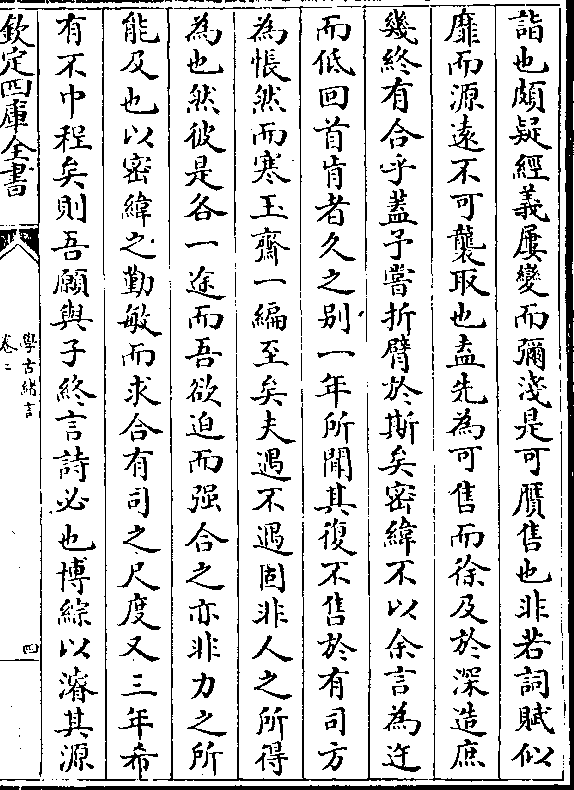 詣也頗疑經義屢變而彌淺是可贋售也非若詞賦似
靡而源遠不可襲取也盍先為可售而徐及於深造庶
幾終有合乎蓋予嘗折臂於斯矣密緯不以余言為迂
而低回首肯者久之别一年所聞其復不售於有司方
為悵然而寒玉齋一編至矣夫遇不遇固非人之所得
為也然彼是各一途而吾欲迫而强合之亦非力之所
能及也以密緯之勤敏而求合有司之尺度又三年希
有不中程矣則吾願與子終言詩必也博綜以濬其源
欽定四庫全書
學古緒言
卷二
四